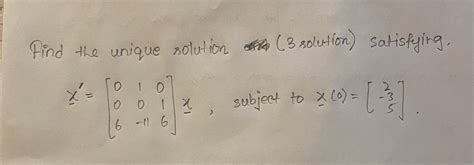 Find the unique solution (3 solution) satisfying.
x' = [0 1 0; 0 0 1; 6 -11 6] x , subject to x(0) = [2; -3; 5] .